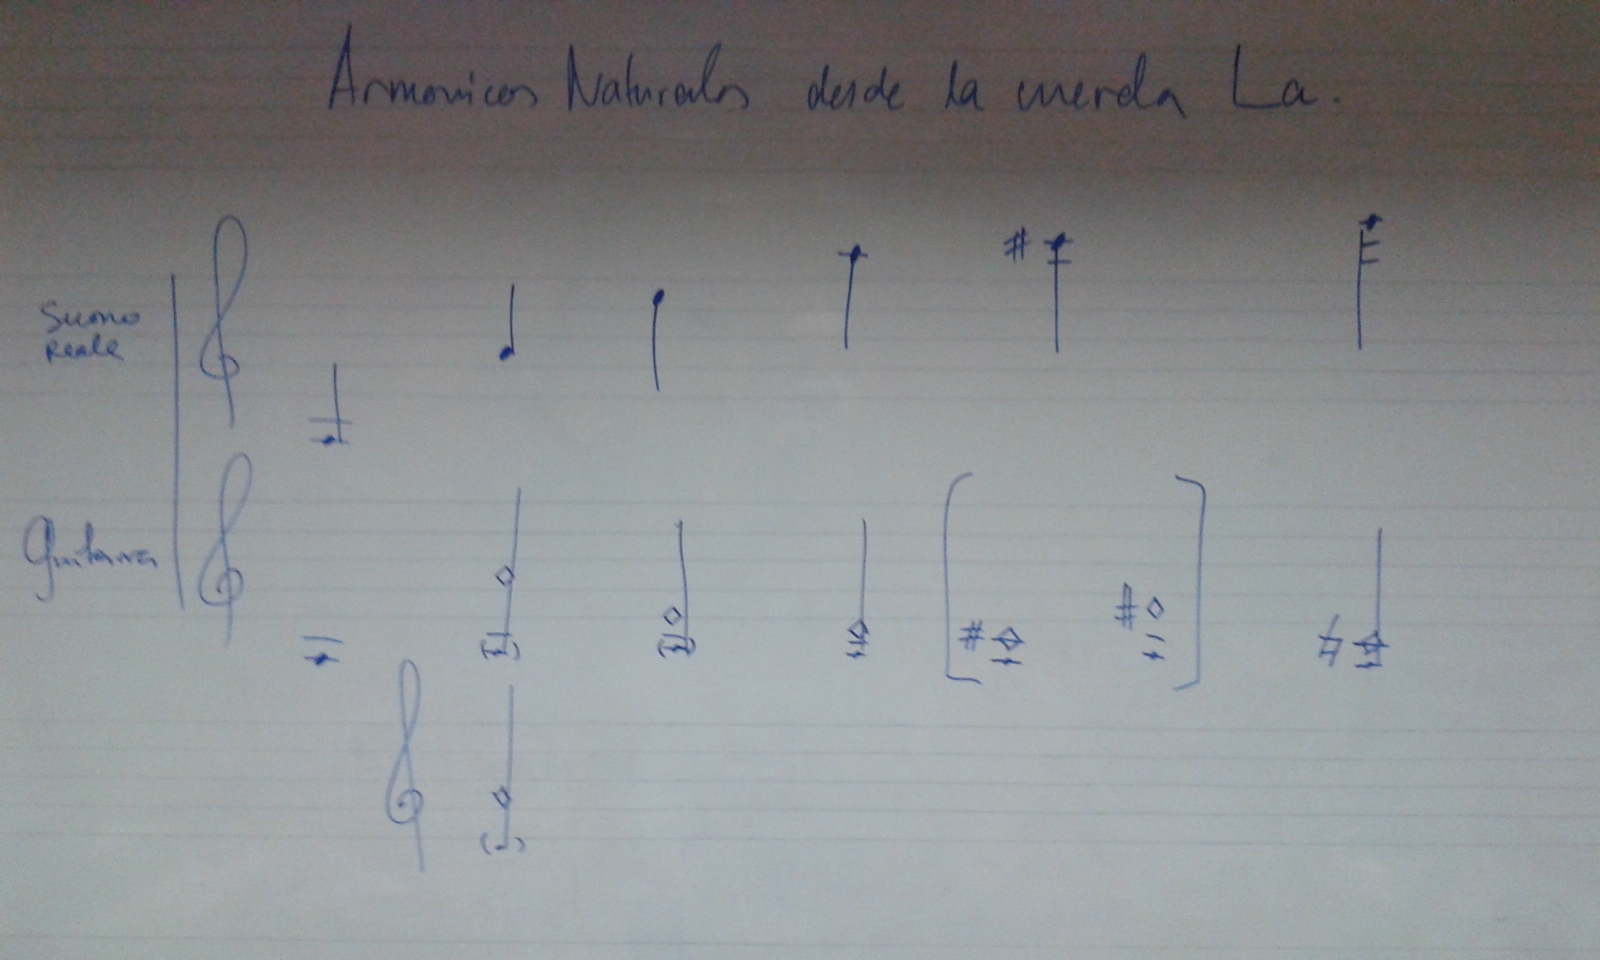 Armonicos Naturales desde la cuerda La.
Suono
Reale
Guitarra